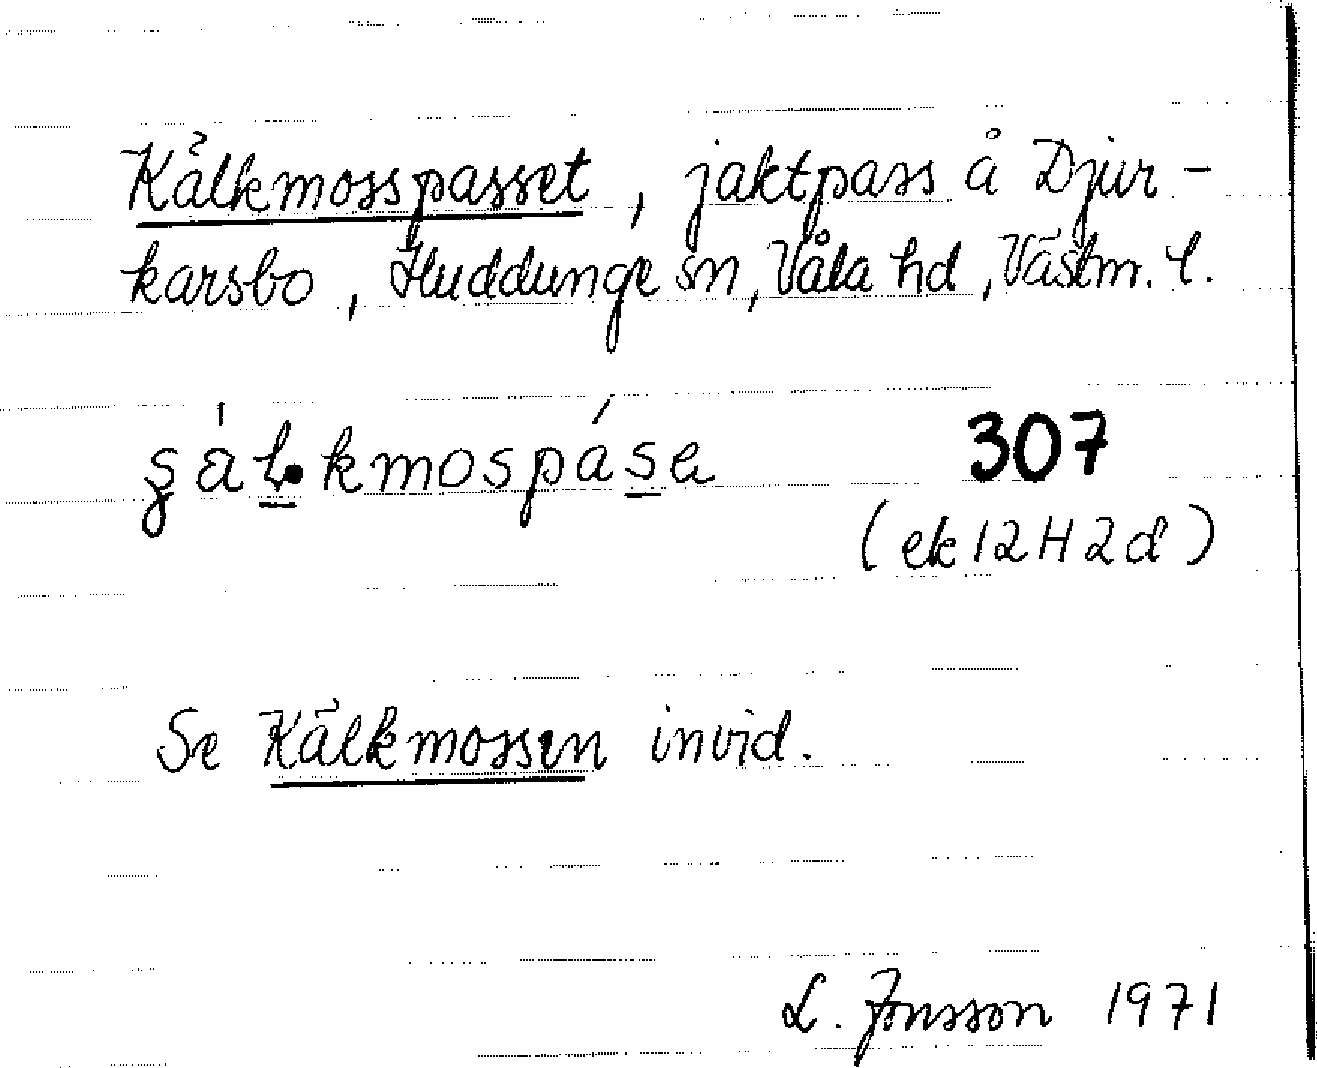 Kälkmosspasset, jaktpass å Djur-
karsbo, Huddunge sn, Våla hd, Västm. l.
ʂáḻ•kmospás̱e 307
(ek 12H2d)
Se Kälkmossen invid.
L. Jonsson 1971